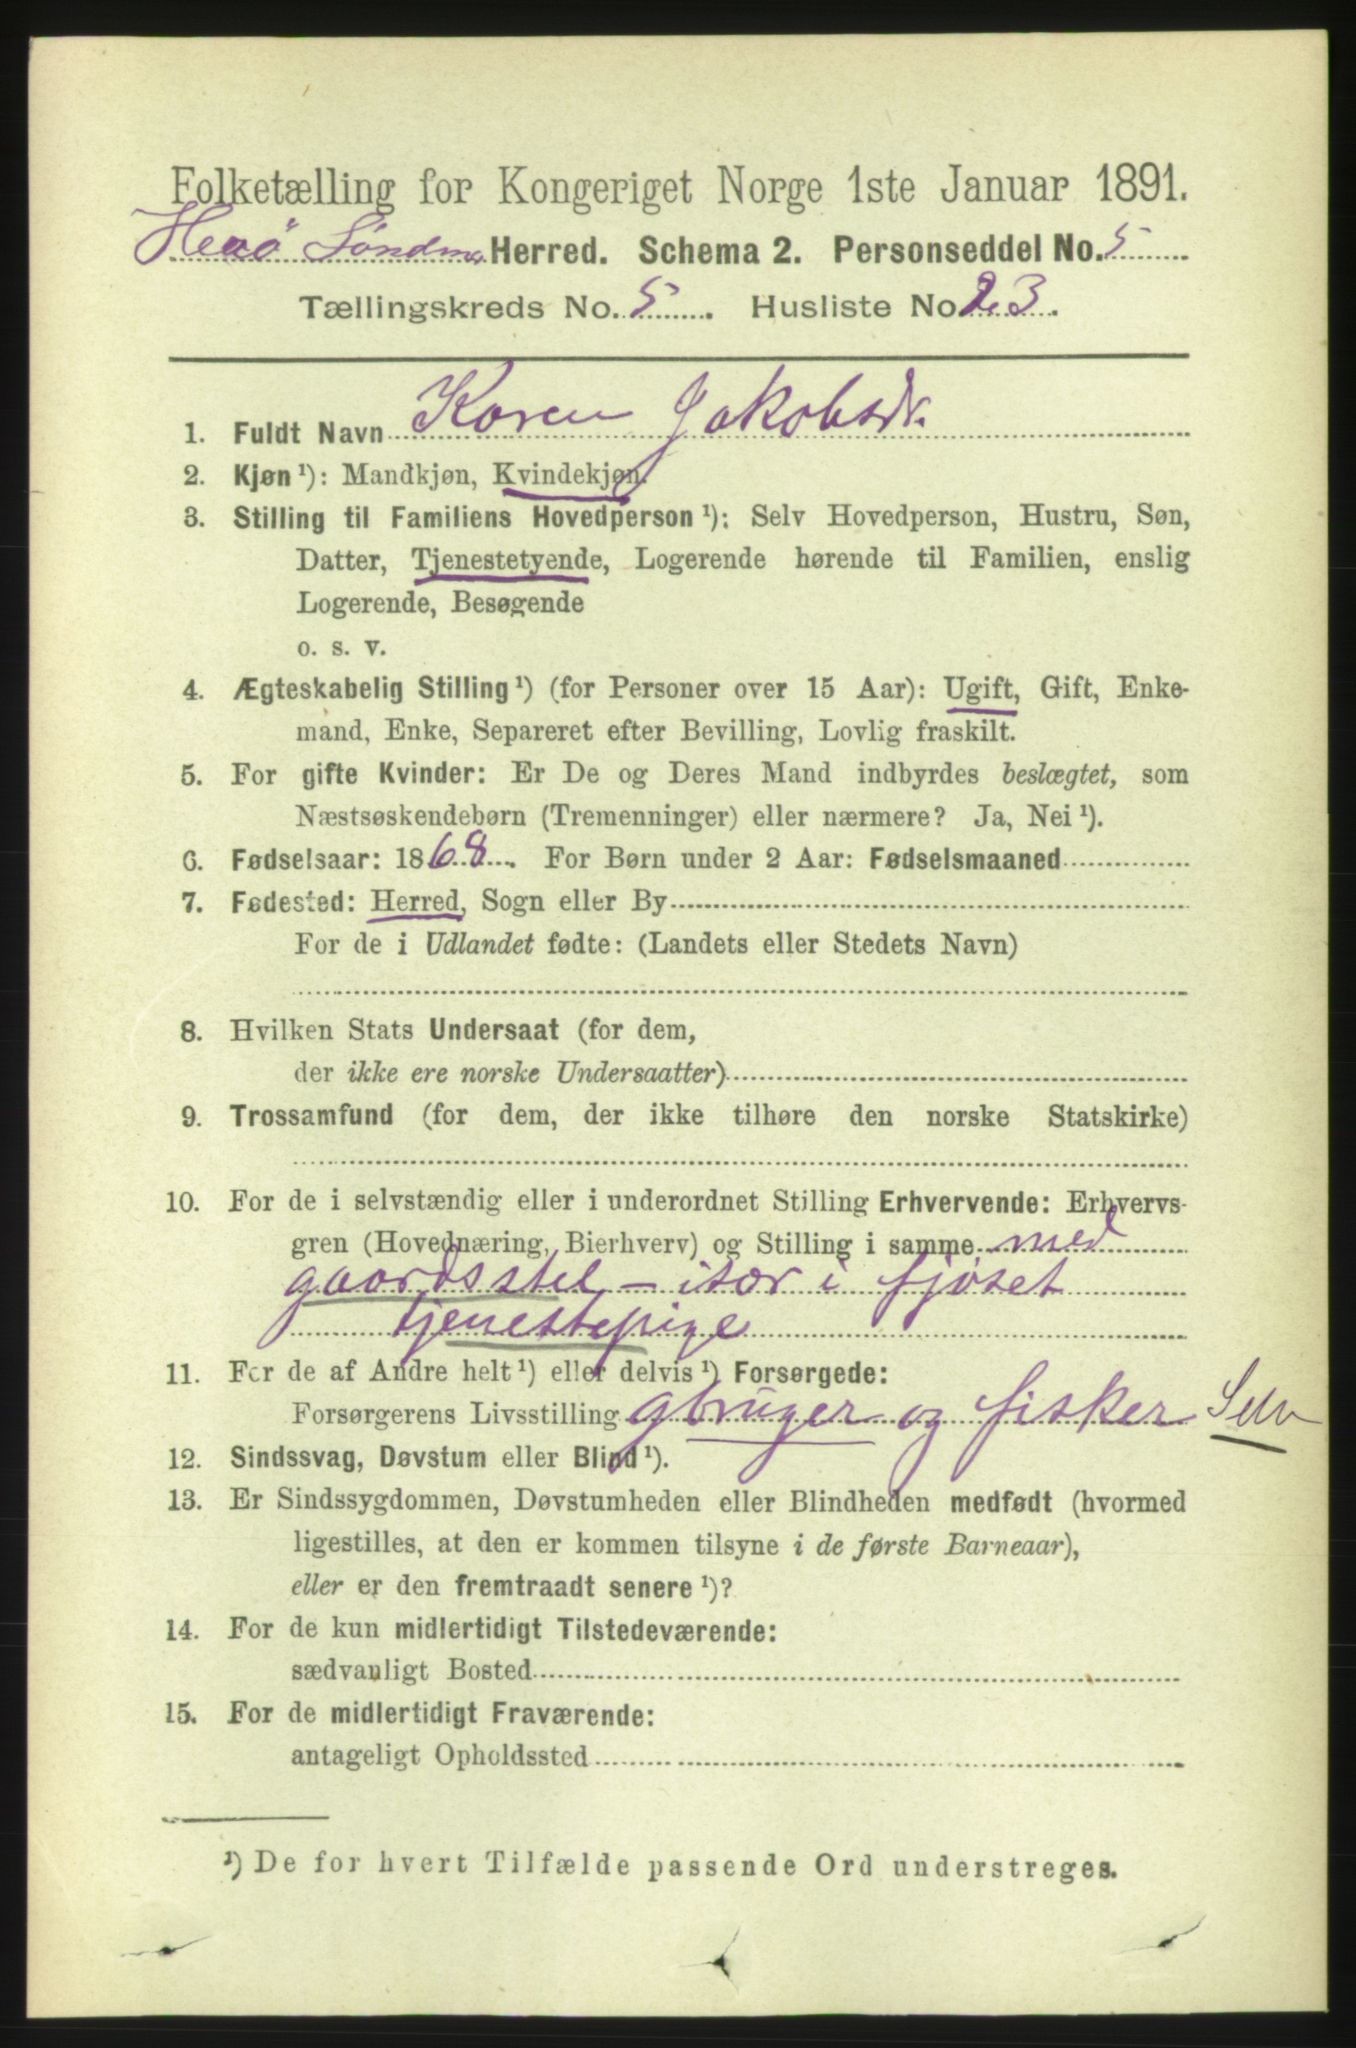 Folketælling for Kongeriget Norge 1ste Januar 1891.
Herø Søndmør Herred. Schema 2. Personseddel No. 5
Tællingskreds No. 5. Husliste No. 23.
1. Fuldt Navn Karen Jakobsdr.
2. Kjøn ¹): Mandkjøn, Kvindekjøn.
3. Stilling til Familiens Hovedperson ¹): Selv Hovedperson, Hustru, Søn,
Datter, Tjenestetyende, Logerende hørende til Familien, enslig
Logerende, Besøgende
o. s. v.
4. Ægteskabelig Stilling ¹) (for Personer over 15 Aar): Ugift, Gift, Enke-
mand, Enke, Separeret efter Bevilling, Lovlig fraskilt.
5. For gifte Kvinder: Er De og Deres Mand indbyrdes beslægtet, som
Næstsøskendebørn (Tremenninger) eller nærmere? Ja, Nei ¹).
6. Fødselsaar: 1868. For Børn under 2 Aar: Fødselsmaaned
7. Fødested: Herred, Sogn eller By
For de i Udlandet fødte: (Landets eller Stedets Navn)
8. Hvilken Stats Undersaat (for dem,
der ikke ere norske Undersaatter)
9. Trossamfund (for dem, der ikke tilhøre den norske Statskirke)
10. For de i selvstændig eller i underordnet Stilling Erhvervende: Erhvervs-
gren (Hovednæring, Bierhverv) og Stilling i samme med
gaardsstel – især i fjøset
tjenestepige
11. For de af Andre helt ¹) eller delvis ¹) Forsørgede:
Forsørgerens Livsstilling gbruger og fisker Selv
12. Sindssvag, Døvstum eller Blind ¹).
13. Er Sindssygdommen, Døvstumheden eller Blindheden medfødt (hvormed
ligestilles, at den er kommen tilsyne i de første Barneaar),
eller er den fremtraadt senere ¹)?
14. For de kun midlertidigt Tilstedeværende:
sædvanligt Bosted
15. For de midlertidigt Fraværende:
antageligt Opholdssted
¹) De for hvert Tilfælde passende Ord understreges.